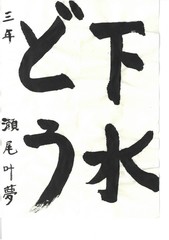 下水
どう
三年 瀬尾叶夢